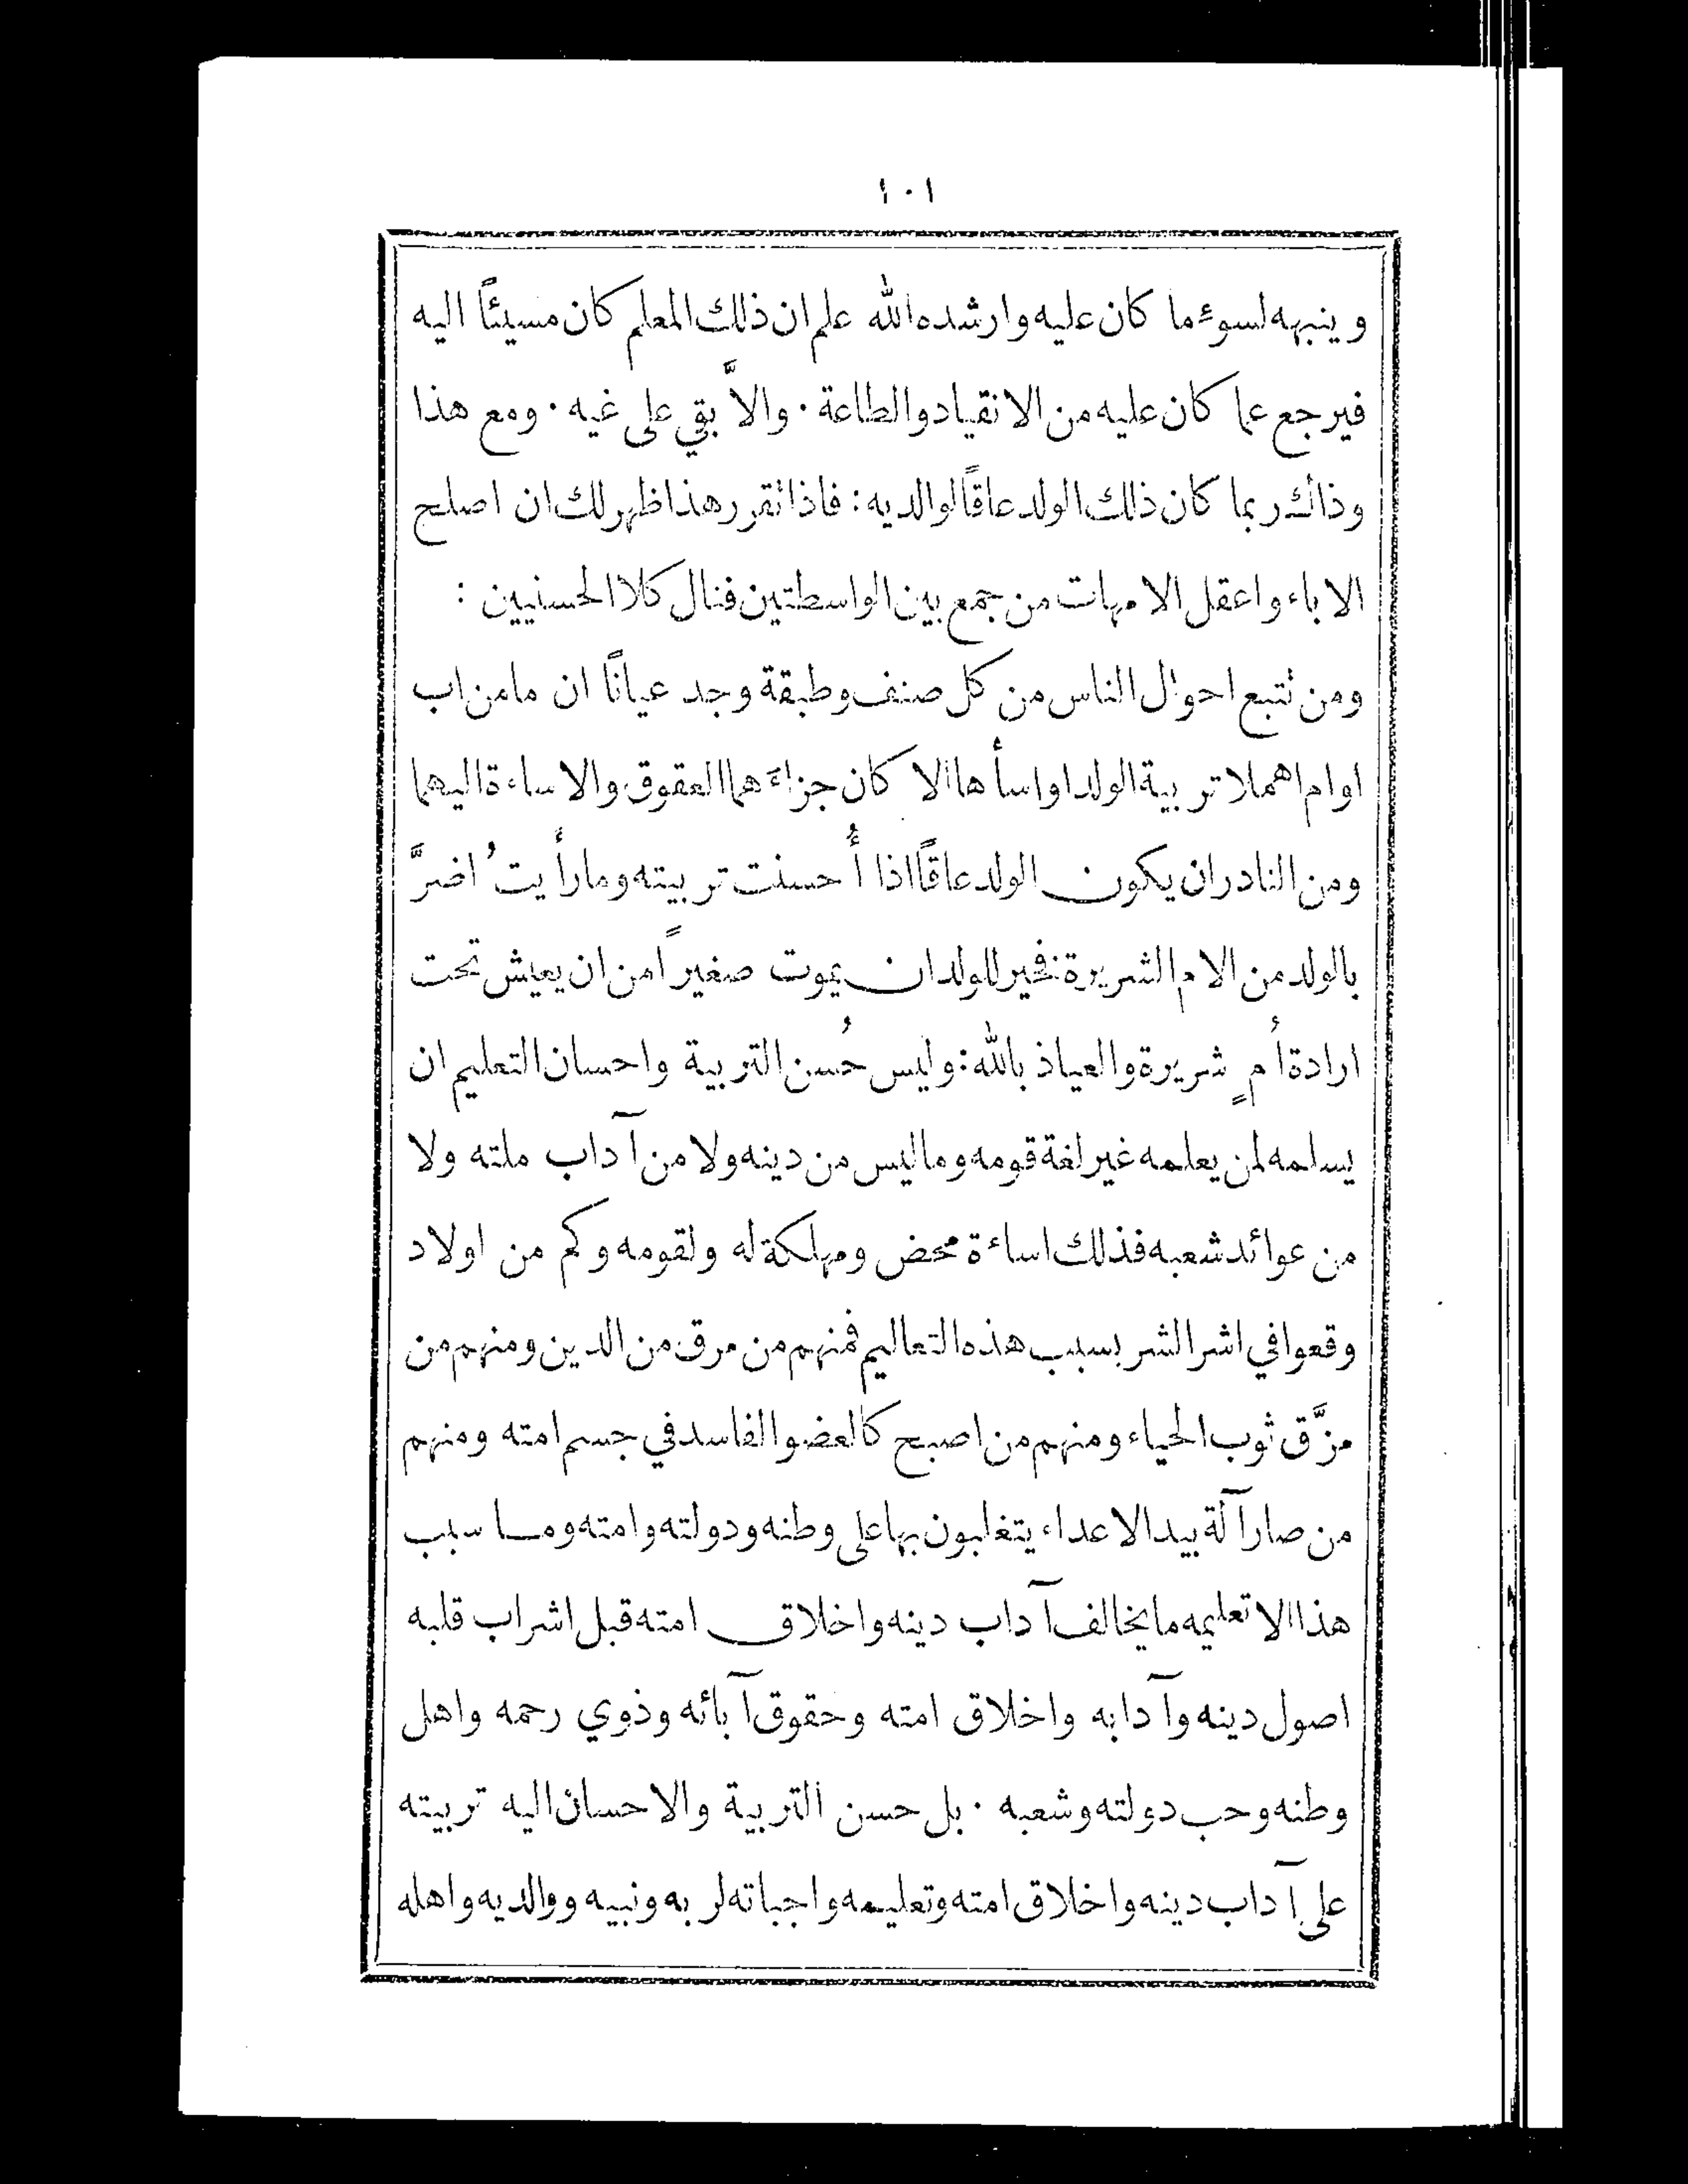 ١٠١
وينبهه لسوء ما كان عليه وارشده الله علم ان ذلك المعلم كان مسيئاً اليه
فيرجع عما كان عليه من الانقياد والطاعة · والاَّ بقي على غيه · ومع هذا
وذاك ربما كان ذلك الولد عاقاً لوالديه : فاذا تقرر هذا ظهر لك ان اصلح
الاباء واعقل الامهات من جمع بين الواسطتين فنال كلا الحسنيين :
ومن تتبع احوال الناس من كل صنف وطبقة وجد عياناً ان ما من اب
اوام اهملا تربية الولد او اسأ ها الا كان جزاءَهما العقوق والاساءة اليهما
ومن النادر ان يكون الولد عاقاً اذا أُحسنت تربيته وما رأيتُ اضرَّ
بالولد من الام الشريرة فخير للولد ان يموت صغيراً من ان يعيش تحت
ارادة أمٍ شريرة والعياذ بالله : وليس حُسن التربية واحسان التعليم ان
يسلمه لمن يعلمه غير لغة قومه وما ليس من دينه ولا من آداب ملته ولا
من عوائد شعبه فذلك اساءة محض ومهلكة له ولقومه وكم من اولاد
وقعوا في اشر الشر بسبب هذه التعاليم فمنهم من مرق من الدين ومنهم من
مزَّق ثوب الحياء ومنهم من اصبح كالعضو الفاسد في جسم امته ومنهم
من صار آلة بيد الاعداء يتغلبون بها على وطنه ودولته وامته وما سبب
هذا الا تعليمه ما يخالف آداب دينه واخلاق امته قبل اشراب قلبه
اصول دينه وآدابه واخلاق امته وحقوق آبائه وذوي رحمه واهل
وطنه وحب دولته وشعبه · بل حسن التربية والاحسان اليه تربيته
على آداب دينه واخلاق امته وتعليمه واجباته لربه ونبيه ووالديه واهله